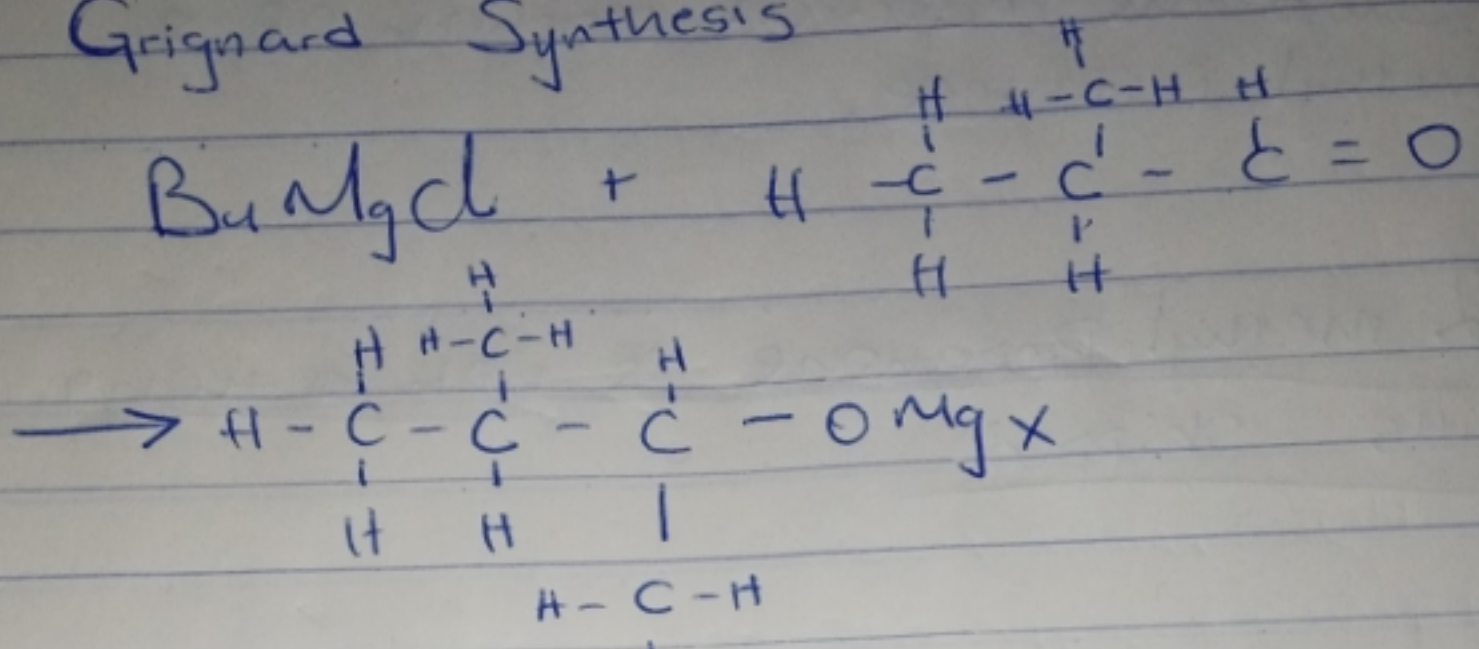 Grignard Synthesis
H
H H-C-H H
BuMgCl + H -C - C - C = O
H H
H
H H-C-H H
→ H - C - C - C - OMgX
H H
H - C - H